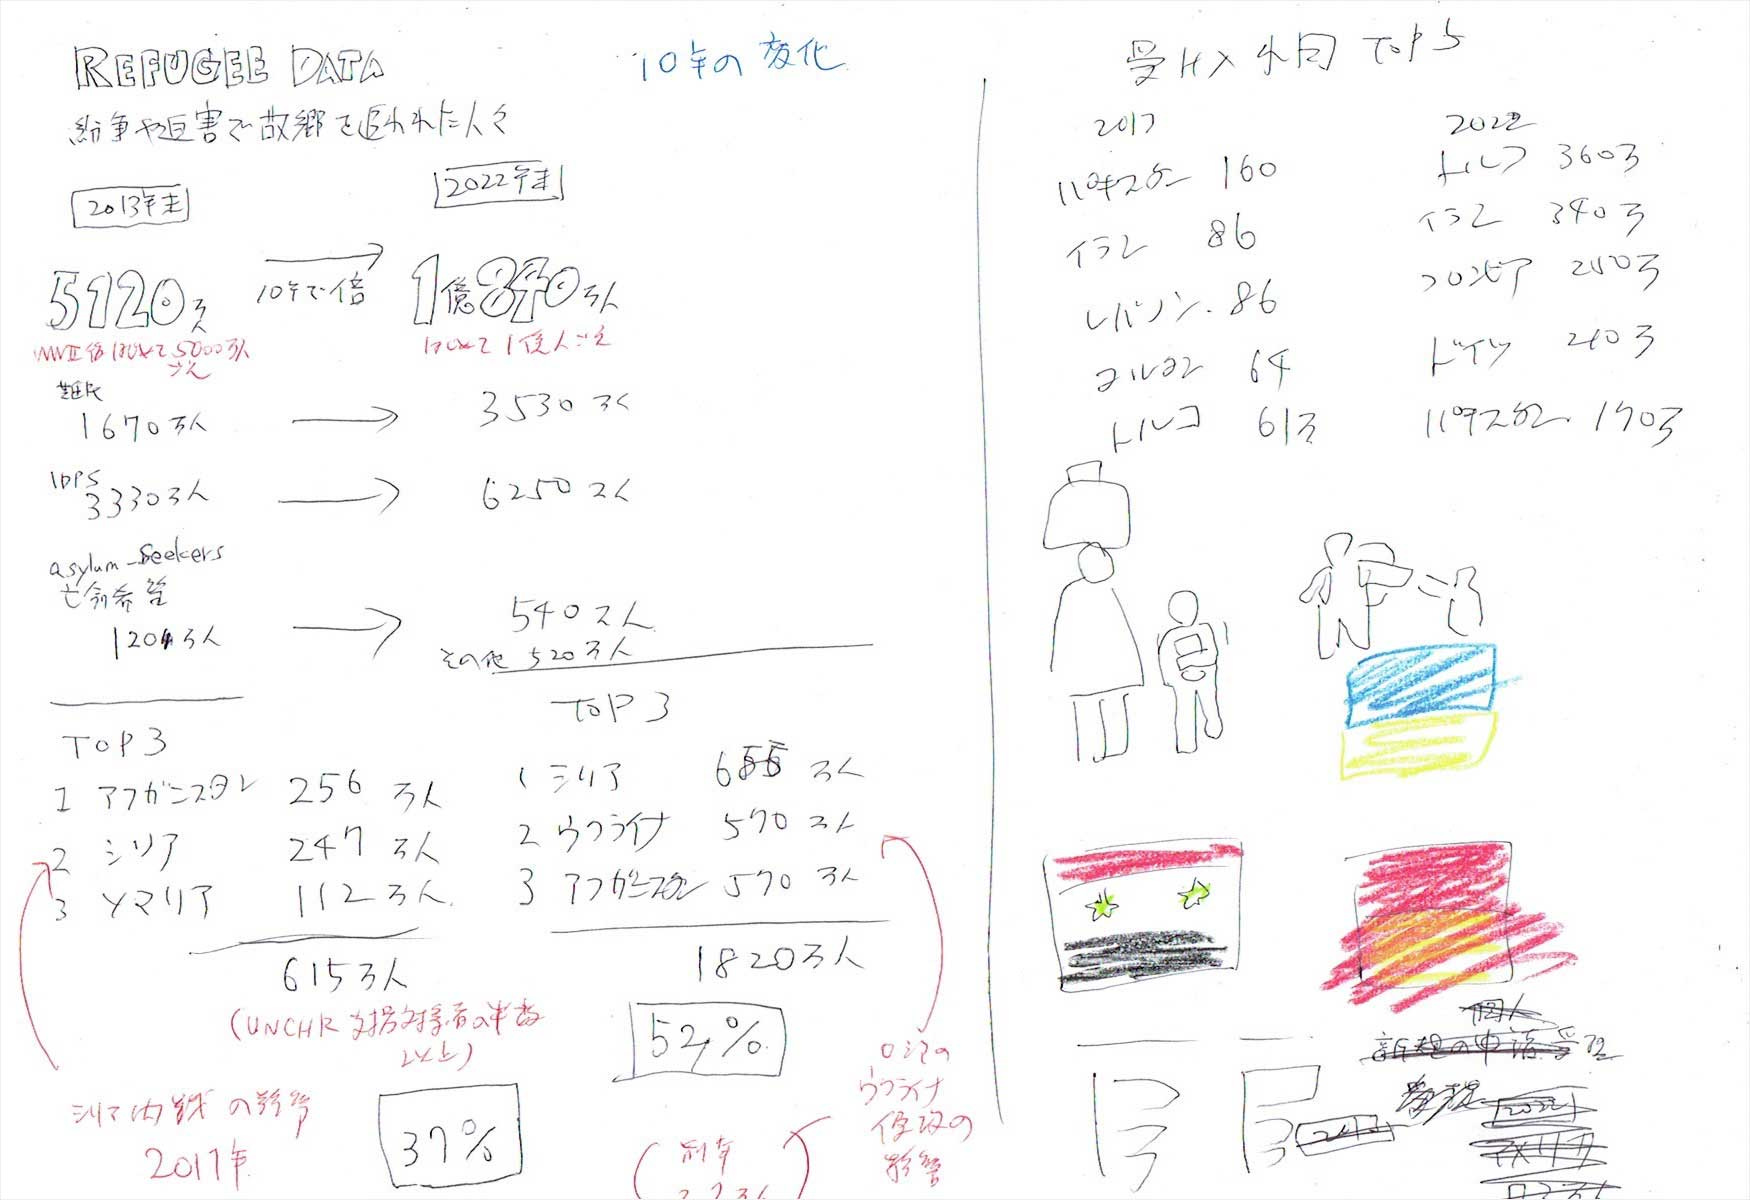 REFUGEE DATA
10年の変化
紛争や迫害で故郷を追われた人々
2013年末
2022年末
5120万人
10年で倍
1億840万人
WWⅡ後はじめて5000万人
ごえ
はじめて1億人ごえ
難民
1670万人
3530万人
IDPS
3330万人
6250万人
asylum-seekers
亡命希望
120万人
540万人
その他 520万人
TOP3
1 アフガニスタン 256 万人
2 シリア 247 万人
3 ソマリア 112万人
615万人
(UNCHR 支援対象者の半数
以上)
シリア内戦の影響
2017年
37%
TOP3
1 シリア 655 万人
2 ウクライナ 570 万人
3 アフガニスタン 570 万人
1820万人
52%
ロシアの
ウクライナ
侵攻の
影響
受け入れ国 TOP5
2017
パキスタン 160
イラン 86
レバノン 86
ヨルダン 64
トルコ 61万
2022
トルコ 360万
イラン 340万
コロンビア 250万
ドイツ 210万
パキスタン 170万
個人
新規の申請受理
2022
アメリカ